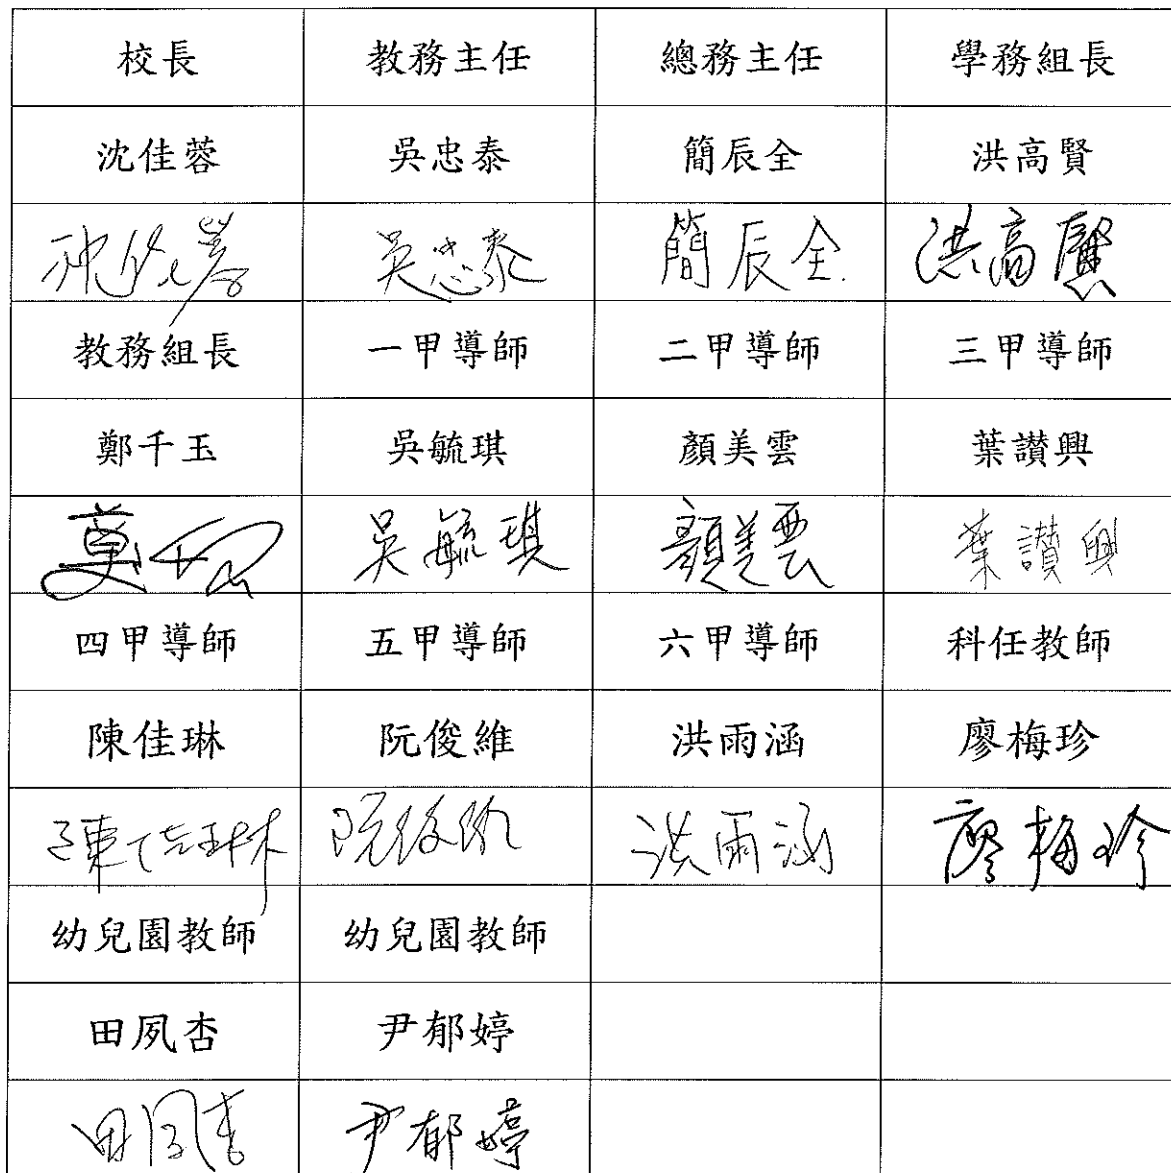 校長 教務主任 總務主任 學務組長
沈佳蓉 吳忠泰 簡辰全 洪高賢
沈佳蓉 吳忠泰 簡辰全 洪高賢
教務組長 一甲導師 二甲導師 三甲導師
鄭千玉 吳毓琪 顏美雲 葉讚興
鄭千玉 吳毓琪 顏美雲 葉讚興
四甲導師 五甲導師 六甲導師 科任教師
陳佳琳 阮俊維 洪雨涵 廖梅珍
陳佳琳 阮俊維 洪雨涵 廖梅珍
幼兒園教師 幼兒園教師
田夙杏 尹郁婷
田夙杏 尹郁婷